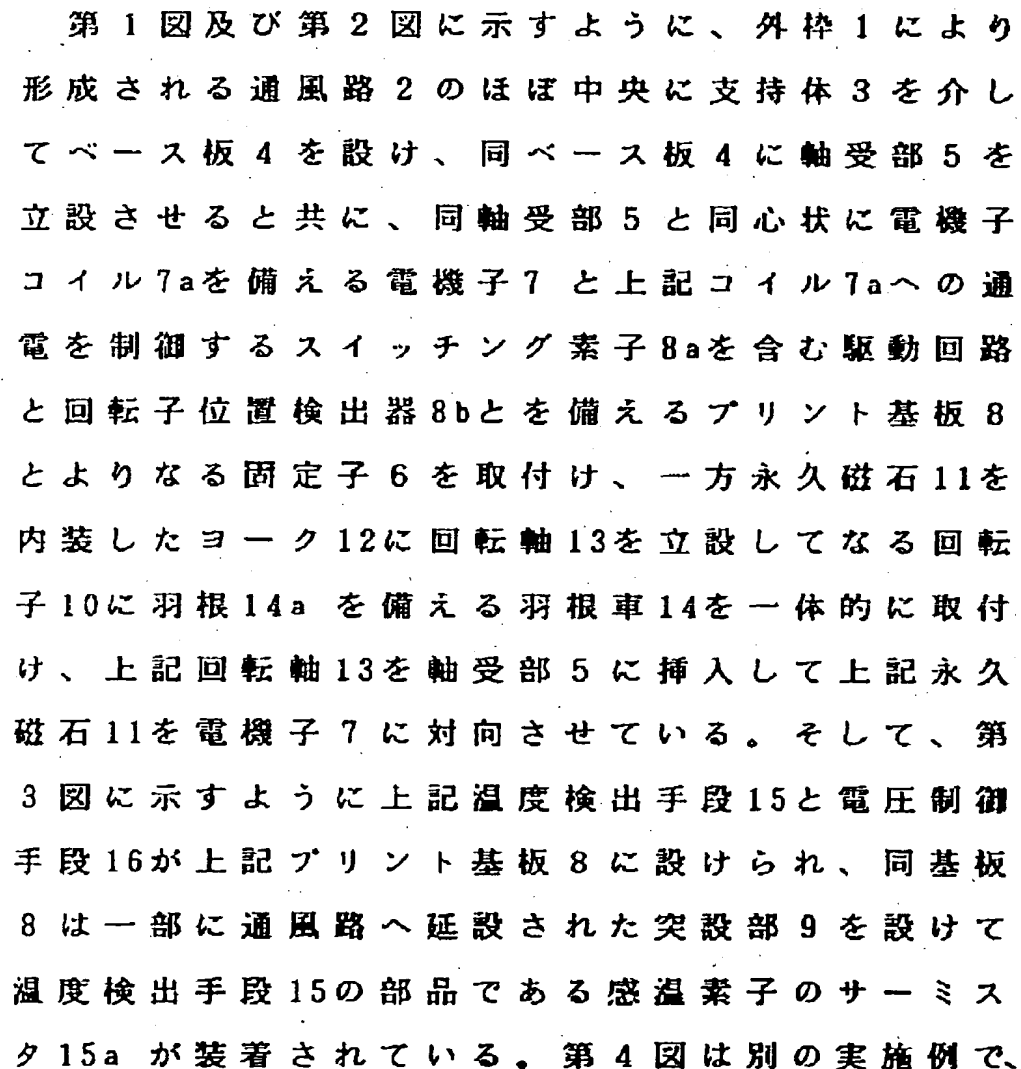 第1図及び第2図に示すように、外枠1により
形成される通風路2のほぼ中央に支持体3を介し
てベース板4を設け、同ベース板4に軸受部5を
立設させると共に、同軸受部5と同心状に電機子
コイル7aを備える電機子7と上記コイル7aへの通
電を制御するスイッチング素子8aを含む駆動回路
と回転子位置検出器8bとを備えるプリント基板8
とよりなる固定子6を取付け、一方永久磁石11を
内装したヨーク12に回転軸13を立設してなる回転
子10に羽根14aを備える羽根車14を一体的に取付
け、上記回転軸13を軸受部5に挿入して上記永久
磁石11を電機子7に対向させている。そして、第
3図に示すように上記温度検出手段15と電圧制御
手段16が上記プリント基板8に設けられ、同基板
8は一部に通風路へ延設された突設部9を設けて
温度検出手段15の部品である感温素子のサーミス
タ15aが装着されている。第4図は別の実施例で、